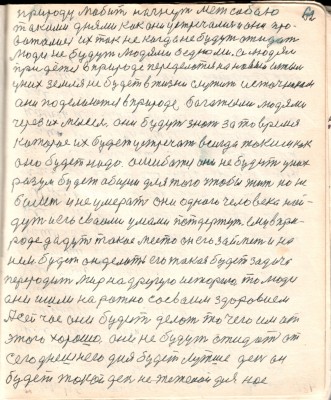 природу любит начнут меж собою
такими днями как они встречались они про-
богатаме, их так не когда не будут ожидат
люди не будут людями бедными. им людям
прийдётся в природе переделотся на новый и так
у них земля не будет в жизни служит источником
они поделаются в природе богатыми людями
через их мысел, они будут знат за то время
которое их будет встречат всегда токим как
оно будет надо. ошибатся они не будут у них
разум будет общий для того чтобы жит но не
болет и не умерат они одного человека най-
дут и его своими умами потдержут. ему в при-
роде дадут такое место он его займет и на
нем будет он делит его такая будет задача
переродит мир на другую историю то люди
они ишли на ротно со своим здоровием
А сейчас они будут делат то чего им от
этого хорошо. они не будут стидат от
сегоднешнего дня будет лутше ден он
будет такой ден не тяжолой для нас